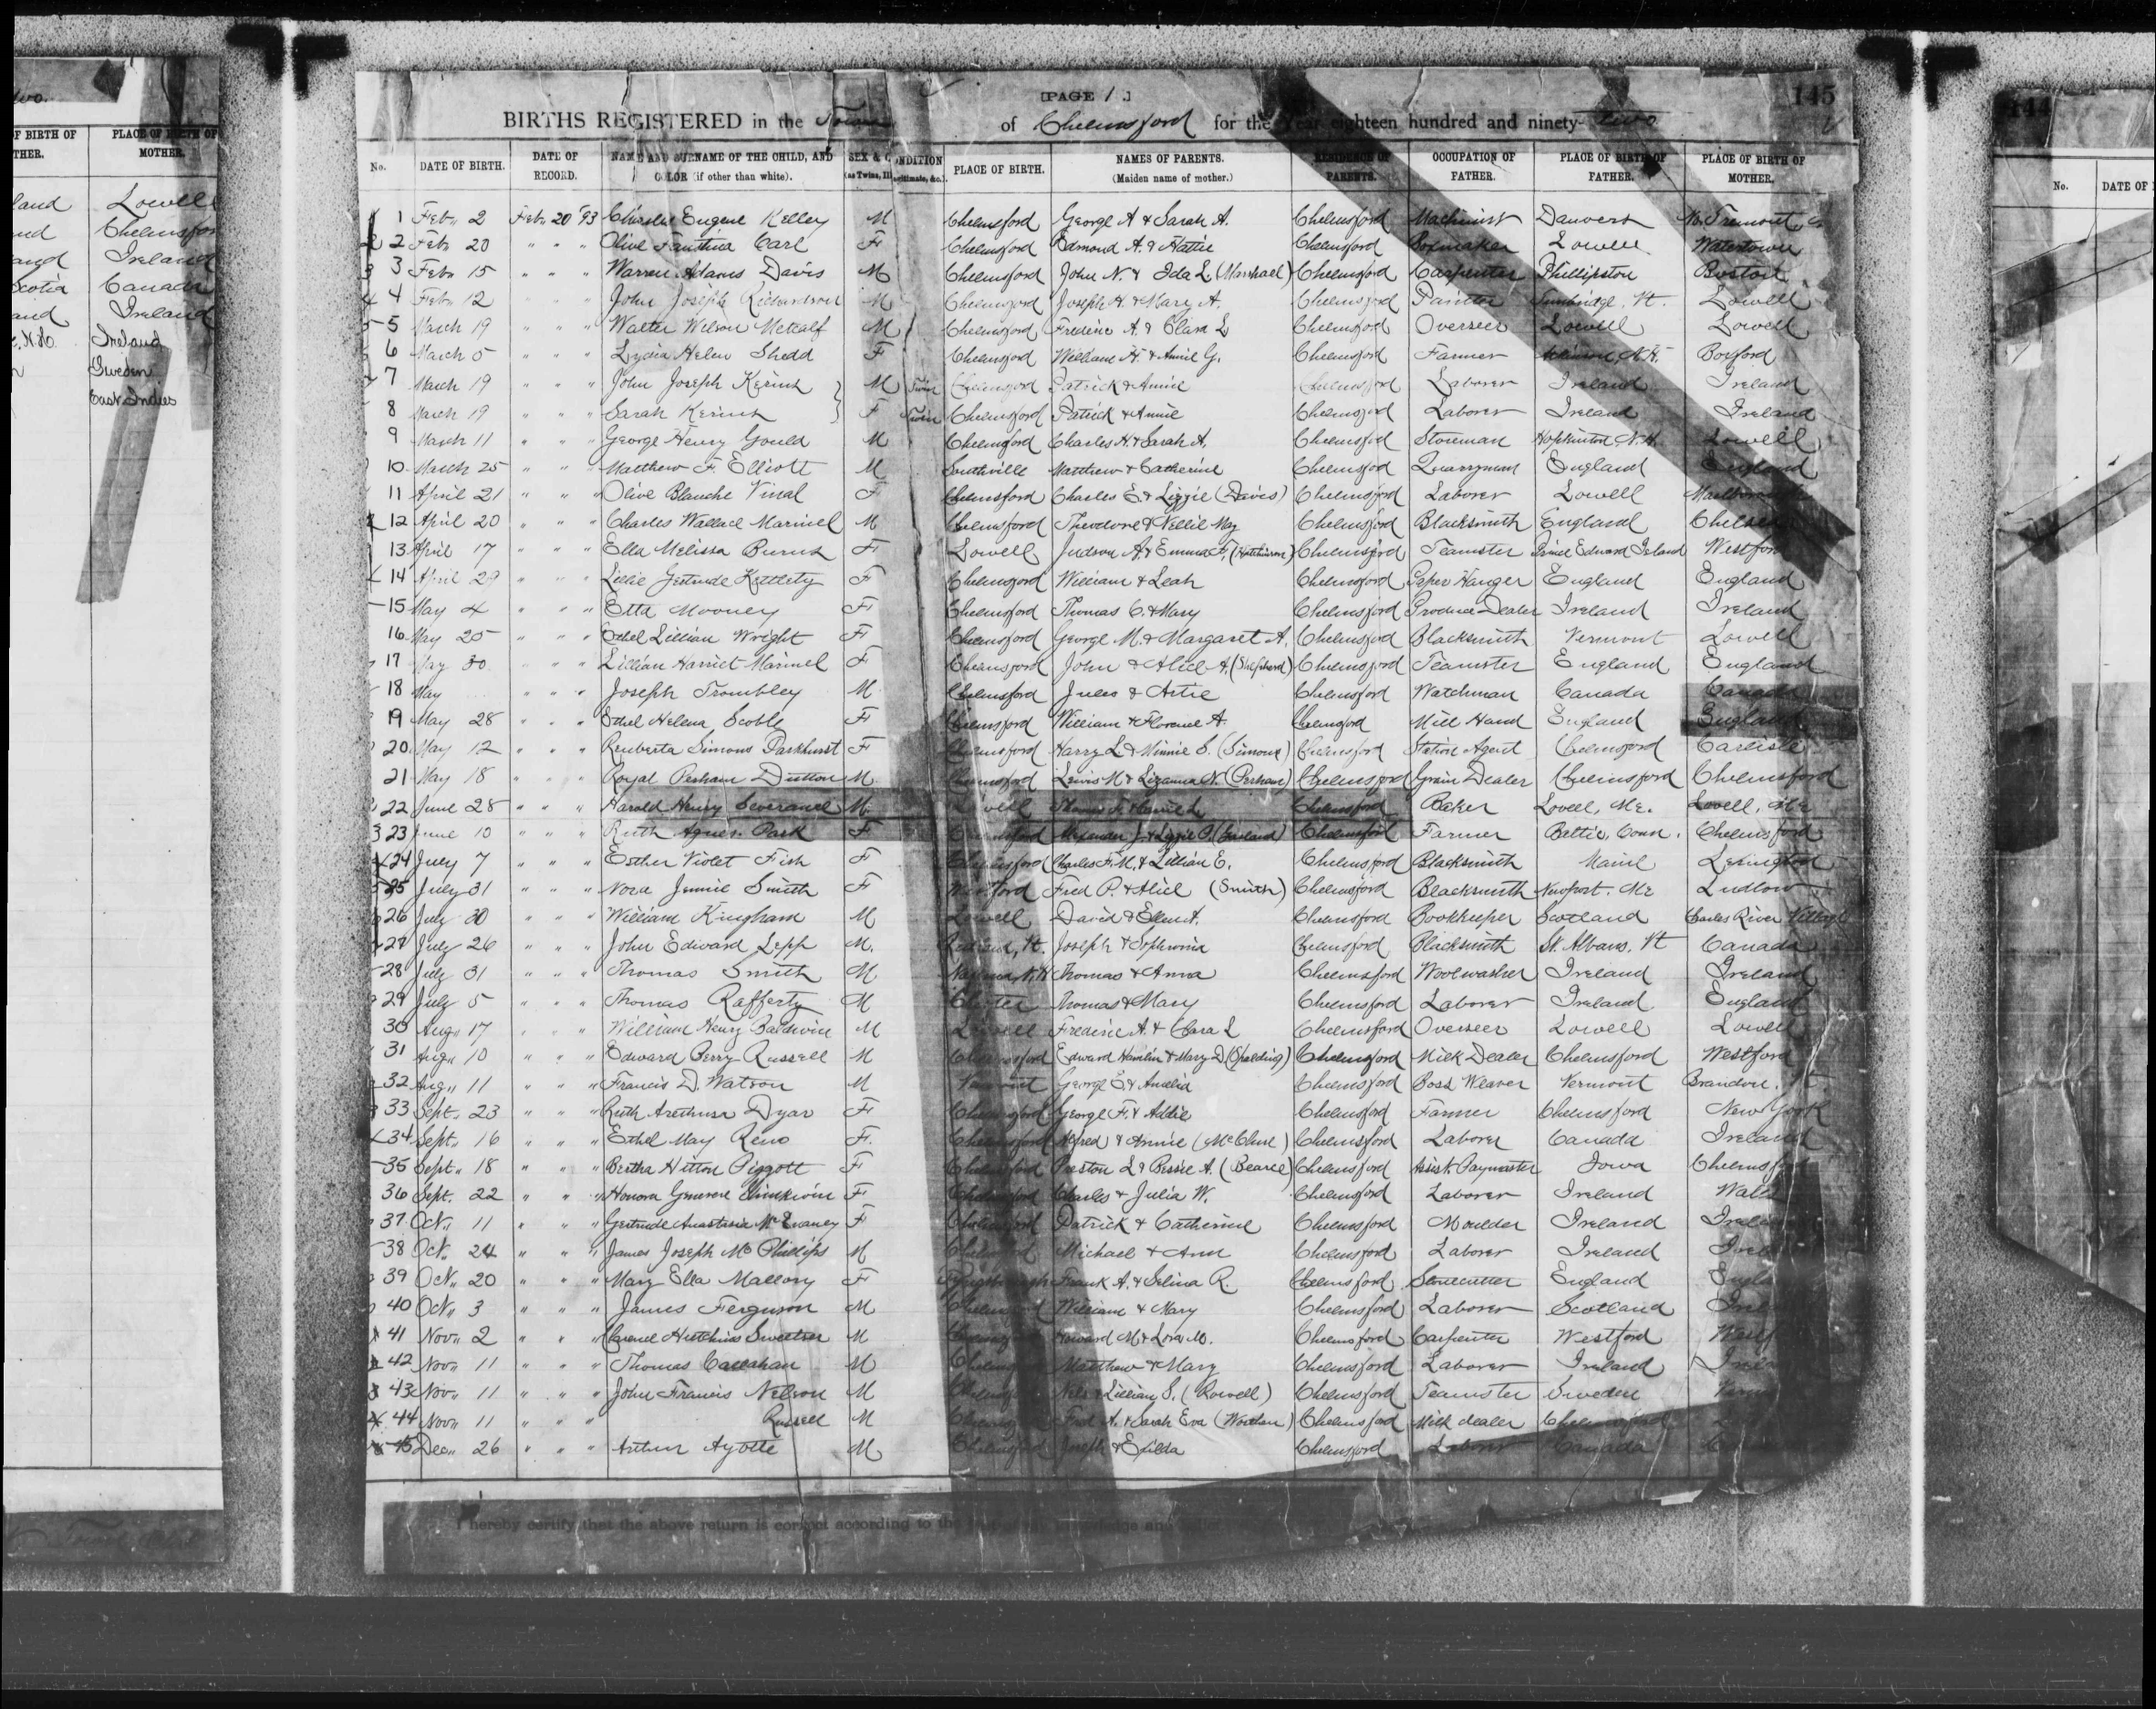 two.
F BIRTH OF
THER.
PLACE OF BIRTH OF
MOTHER.
land Lowell
nd Chelmsfor
and Ireland
Scotia Canada
and Ireland
, N.B. Ireland
Sweden
East Indies
[PAGE 1.]
145
BIRTHS REGISTERED in the Town of Chelmsford for the Year eighteen hundred and ninety-two
No. DATE OF BIRTH. DATE OF RECORD. NAME AND SURNAME OF THE CHILD, AND COLOR (if other than white). SEX & CONDITION PLACE OF BIRTH. NAMES OF PARENTS. (Maiden name of mother.) RESIDENCE OF PARENTS. OCCUPATION OF FATHER. PLACE OF BIRTH OF FATHER. PLACE OF BIRTH OF MOTHER.
1 Feb. 2 Feb. 20 '93 Charles Eugene Kelley M Chelmsford George A & Sarah A. Chelmsford Machinist Danvers No. Tremont
2 Feb 20 " " " Olive Carl F Chelmsford Edmond A. & Hattie Chelmsford Boxmaker Lowell Watertown
3 Feb 15 " " " Warren Adams Davis M Chelmsford John N. & Ida L. (Marshall) Chelmsford Carpenter Phillipston Boston
4 Feb 12 " " " John Joseph Richardson M Chelmsford Joseph H. & Mary A. Chelmsford Painter Tunbridge, Vt. Lowell
5 March 19 " " " Walter Wilson Metcalf M Chelmsford Frederic A. & Clara L Chelmsford Overseer Lowell Lowell
6 March 5 " " " Lydia Helen Shedd F Chelmsford William H. & Annie G. Chelmsford Farmer N.H. Boxford
7 March 19 " " " John Joseph Kerins M Twin Chelmsford Patrick & Annie Chelmsford Laborer Ireland Ireland
8 March 19 " " " Sarah Kerins F Twin Chelmsford Patrick & Annie Chelmsford Laborer Ireland Ireland
9 March 11 " " " George Henry Gould M Chelmsford Charles H. & Sarah A. Chelmsford Stoneman Hopkinton N.H. Lowell
10 March 25 " " " Matthew F. Elliott M Southville Matthew & Catherine Chelmsford Quarryman England England
11 April 21 " " " Olive Blanche Vinal F Chelmsford Charles E. & Lizzie (Davis) Chelmsford Laborer Lowell Marlborough
12 April 20 " " " Charles Wallace Marinel M Chelmsford Theodore & Nellie May Chelmsford Blacksmith England Chelsea
13 April 17 " " " Ella Melissa Burns F Lowell Judson A. & Emma F. (Hutchinson) Chelmsford Teamster Prince Edward Island Westford
14 April 29 " " " Lillie Gertrude Kettlety F Chelmsford William & Leah Chelmsford Paper Hanger England England
15 May 4 " " " Etta Mooney F Chelmsford Thomas C. & Mary Chelmsford Produce Dealer Ireland Ireland
16 May 25 " " " Ethel Lillian Wright F Chelmsford George M. & Margaret A. Chelmsford Blacksmith Vermont Lowell
17 May 30 " " " Lillian Harriet Marinel F Chelmsford John & Alice A. (Shepherd) Chelmsford Teamster England England
18 May " " " Joseph Trombley M Chelmsford Jules & Artie Chelmsford Watchman Canada Canada
19 May 28 " " " Ethel Helena Scoble F Chelmsford William & Florence A. Chelmsford Mill Hand England England
20 May 12 " " " Renberta Simons Parkhurst F Chelmsford Harry L & Minnie S. (Simons) Chelmsford Station Agent Chelmsford Carlisle
21 May 18 " " " Royal Perham Dutton M Chelmsford Lewis M & Lizanna N. (Perham) Chelmsford Grain Dealer Chelmsford Chelmsford
22 June 28 " " " Harold Henry Severance M Lovell Chelmsford Baker Lovell, Me. Lovell, Me
23 June 10 " " " Ruth Agnes Park F Chelmsford Alexander J. & Lizzie P. (Garland) Chelmsford Farmer Conn. Chelmsford
24 July 7 " " " Esther Violet Fish F Chelmsford Charles F. M. & Lillian E. Chelmsford Blacksmith Maine Lexington
25 July 31 " " " Nora Jennie Smith F Westford Fred P. & Alice (Smith) Chelmsford Blacksmith Newport, Me Ludlow
26 July 30 " " " William Kingham M Lowell David & Ellen A. Chelmsford Bookkeeper Scotland Charles River Village
27 July 26 " " " John Edward Lepp M. Vt. Joseph & Sophronia Chelmsford Blacksmith St. Albans, Vt Canada
28 July 31 " " " Thomas Smith M Nashua N.H. Thomas & Anna Chelmsford Woolwasher Ireland Ireland
29 July 5 " " " Thomas Rafferty M Chester Thomas & Mary Chelmsford Laborer Ireland England
30 Aug. 17 " " " William Henry Baldwin M Lowell Frederic A. & Clara L Chelmsford Overseer Lowell Lowell
31 Aug. 10 " " " Edward Perry Russell M Chelmsford Edward Hamlin & Mary D (Spalding) Chelmsford Milk Dealer Chelmsford Westford
32 Aug. 11 " " " Francis D. Watson M Vermont George E & Amelia Chelmsford Boss Weaver Vermont Brandon, Vt
33 Sept. 23 " " " Ruth Arethusa Dyar F Chelmsford George F. & Addie Chelmsford Farmer Chelmsford New York
34 Sept. 16 " " " Ethel May Reno F. Chelmsford Alfred & Annie (McClure) Chelmsford Laborer Canada Ireland
35 Sept. 18 " " " Bertha Hitton Piggott F Chelmsford Preston L & Bessie A. (Bearce) Chelmsford Assist. Paymaster Iowa Chelmsf
36 Sept. 22 " " " Honora Genevere F Chelmsford Charles & Julia W. Chelmsford Laborer Ireland
37 Oct. 11 " " " Gertrude Anastasia McEnaney F Chelmsford Patrick & Catherine Chelmsford Moulder Ireland Irel
38 Oct. 24 " " " James Joseph McPhillips M Chelmsford Michael & Ann Chelmsford Laborer Ireland Irel
39 Oct. 20 " " " Mary Ella Mallory F Tyngsborough Frank A. & Selina R. Chelmsford Stonecutter England Engla
40 Oct. 3 " " " James Ferguson M Chelmsford William & Mary Chelmsford Laborer Scotland Irel
41 Nov. 2 " " " Hutchins Sweetser M Chelmsf Howard M & Lora M. Chelmsford Carpenter Westford Westf
42 Nov. 11 " " " Thomas Callahan M Chelmsf Matthew & Mary Chelmsford Laborer Ireland Irela
43 Nov. 11 " " " John Francis Nelson M Chelmsf Nels & Lillian S. (Rowell) Chelmsford Teamster Sweden Verm
44 Nov. 11 " " " Russell M Chelmsf Fred A. & Sarah Eva (Worthen) Chelmsford Milk dealer Chelmsford
45 Dec. 26 " " " Arthur Ayotte M Chelmsford Joseph & Exilda Chelmsford Laborer Canada
I hereby certify that the above return is correct according to the
144
No. DATE OF